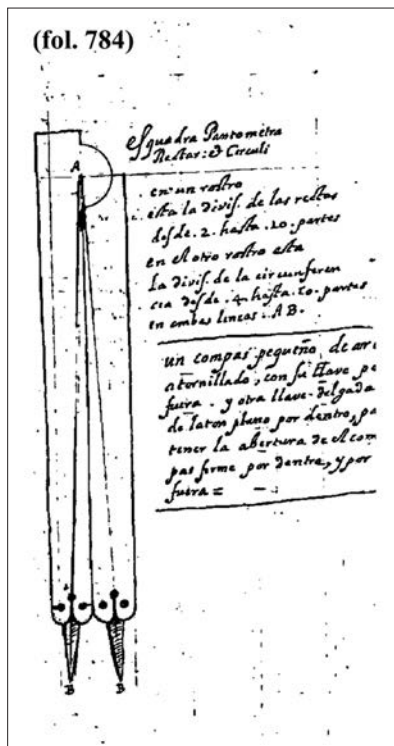 (fol. 784)
Esquadra Pantometra
Rectar: et Circuli
A
en un rostro
esta la divis. de las rectas
desde .2. hasta .10. partes
en el otro rostro esta
la divis. de la circunferen
cia desde .4. hasta .20. partes
en ambas lineas .AB.
un compas pequeño, de
atornillado, con su llave
fuera. y otra llave delgada
de laton plano por dentro,
tener la abertura de el com
pas firme por dentro, y por
fuera =
B B